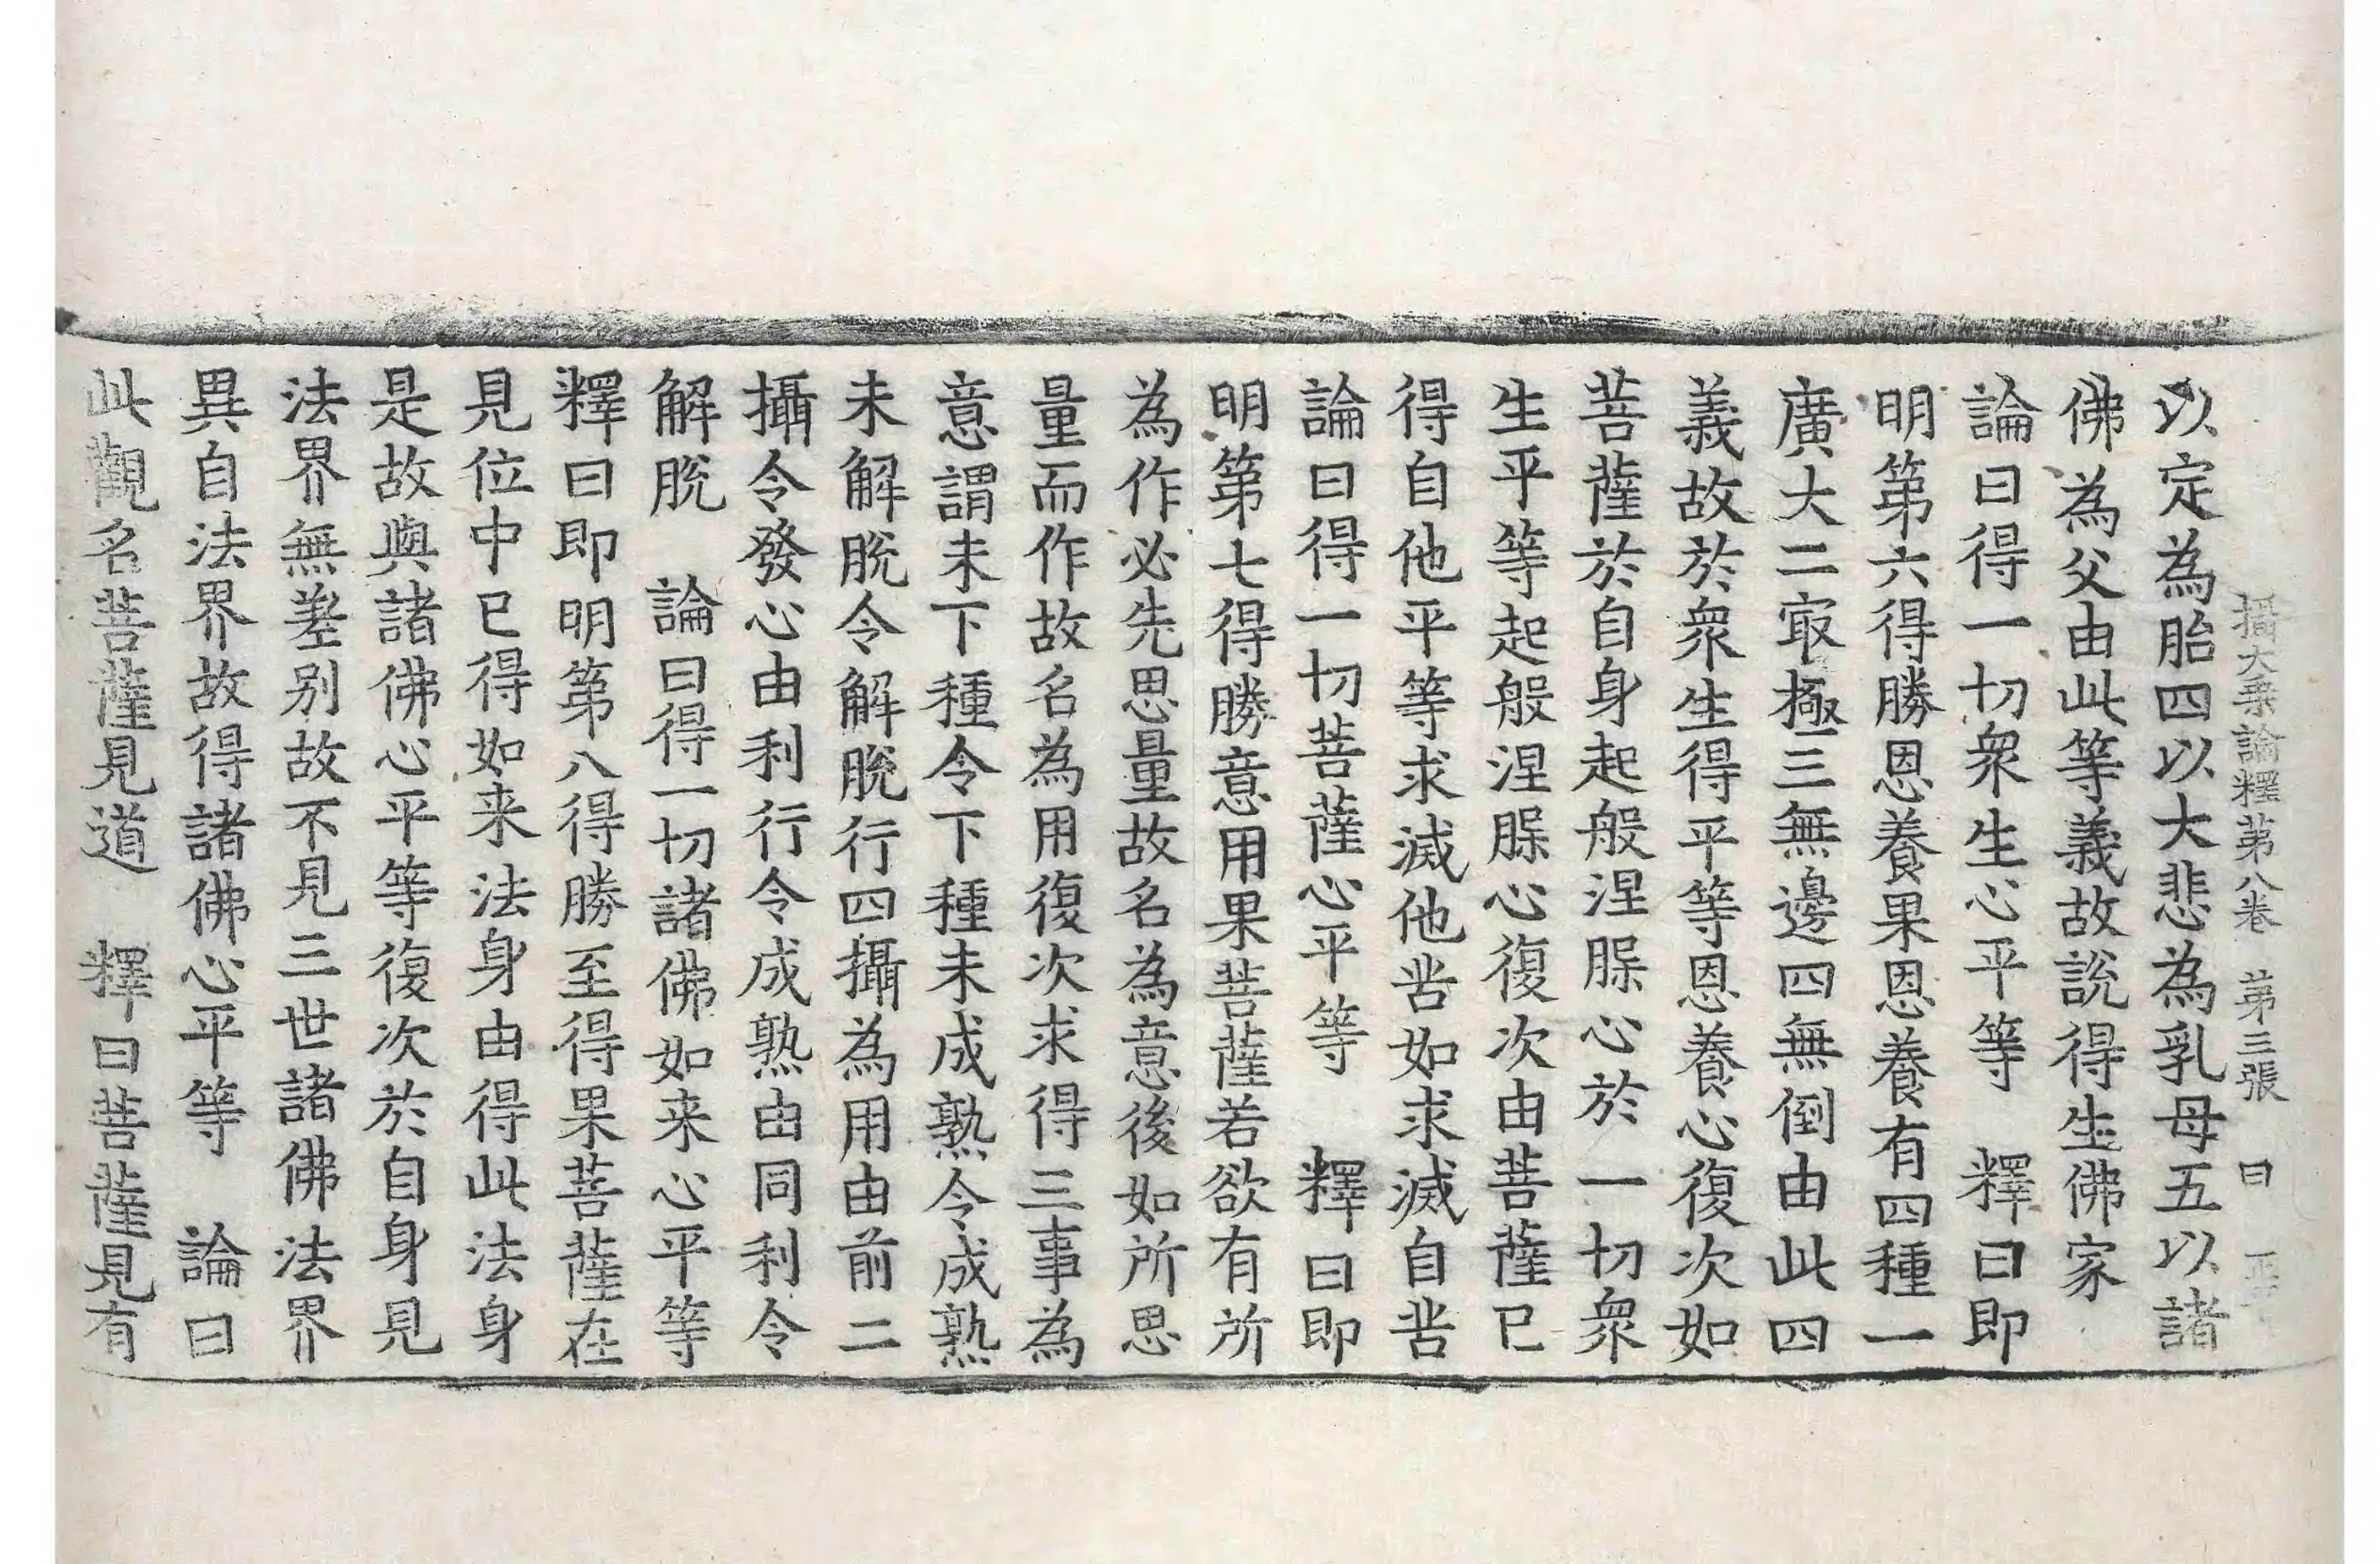 攝大乗論釋第八卷　第三張　曰
以定為胎四以大悲為乳母五以諸
佛為父由此等義故説得生佛家
論曰得一切衆生心平等　釋曰即
明第六得勝恩養果恩養有四種一
廣大二㝡極三無邊四無倒由此四
義故於衆生得平等恩養心復次如
菩薩於自身起般涅脲心於一切衆
生平等起般涅脲心復次由菩薩已
得自他平等求滅他苦如求滅自苦
論曰得一切菩薩心平等　釋曰即
明第七得勝意用果菩薩若欲有所
為作必先思量故名為意後如所思
量而作故名為用復次求得三事為
意謂未下種令下種未成熟令成熟
未解脫令解脫行四攝為用由前二
攝令發心由利行令成熟由同利令
解脫　論曰得一切諸佛如来心平等
釋曰即明第八得勝至得果菩薩在
見位中已得如来法身由得此法身
是故與諸佛心平等復次於自身見
法界無差别故不見三世諸佛法界
異自法界故得諸佛心平等　論曰
此觀名菩薩見道　釋曰菩薩見有